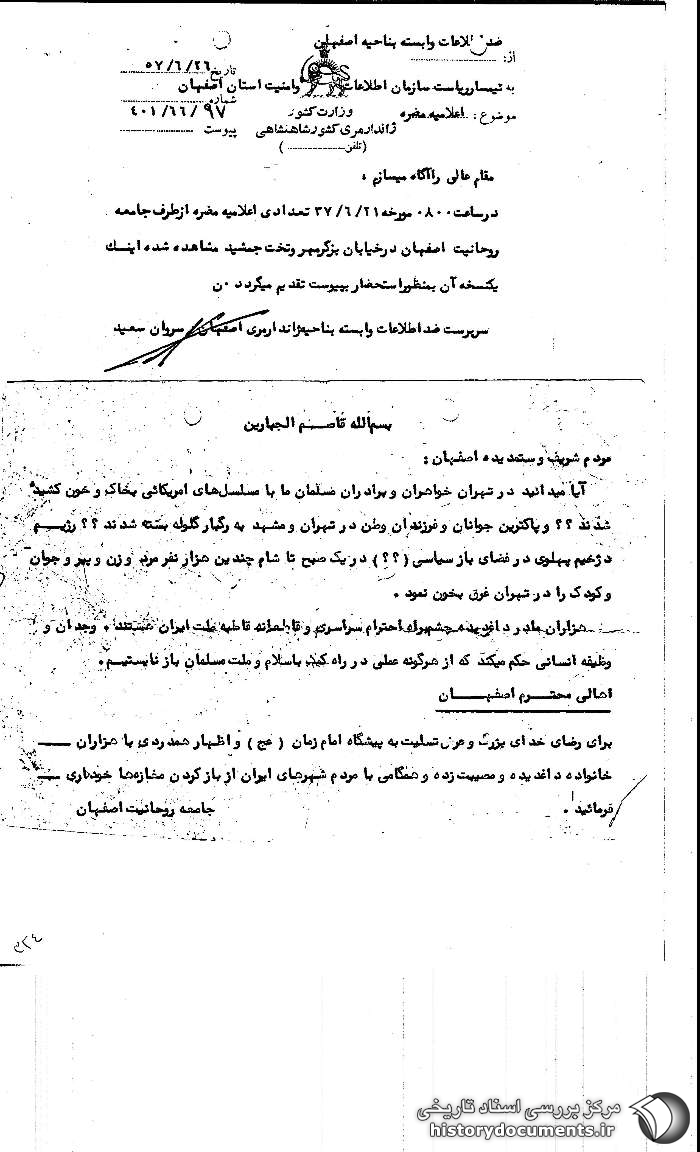 ضد اطلاعات وابسته بناحیه اصفهان
از:
تاریخ ۵۷/۶/۲۶
به تیمسار ریاست سازمان اطلاعات وامنیت استان اصفهان
شماره ۴۰۱/۶۶/۹۷
موضوع: اعلامیه مضره
وزارت کشور
ژاندارمری کشور شاهنشاهی
پیوست
(تلفن )
مقام عالی راآگاه میسازم :
درساعت ۰۸۰۰ مورخه ۳۷/۶/۲۱ تعدادی اعلامیه مضره ازطرف جامعه
روحانیت اصفهان درخیابان بزرگمهر وتخت جمشید مشاهده شده اینک
یکنسخه آن بمنظوراستحضار بپیوست تقدیم میگردد ۰ن
سرپرست ضد اطلاعات وابسته بناحیه ژاندارمری اصفهان سروان سعید
بسم‌الله قاصم الجبارین
مردم شریف و ستمدیده اصفهان :
آیا میدانید در تهران خواهران و برادران مسلمان ما با مسلسل‌های امریکائی بخاک و خون کشیده
شدند ؟؟ و پاکترین جوانان و فرزندان وطن در تهران و مشهد به رگبار گلوله بسته شدند ؟؟ رژیم
دژخیم پهلوی در فضای باز سیاسی (؟؟) در یک صبح تا شام چندین هزار نفر مرد و زن و پیر و جوان
و کودک را در تهران غرق بخون نمود .
هزاران مادر داغدیده چشمبراه احترام سراسری و قاطعانه قاطبه ملت ایران هستند . وجدان و
وظیفه انسانی حکم میکند که از هرگونه عملی در راه کمک باسلام و ملت مسلمان باز نایستیم .
اهالی محترم اصفهان
برای رضای خدای بزرگ و عرض تسلیت به پیشگاه امام زمان (عج) و اظهار همدردی با هزاران
خانواده داغدیده و مصیبت زده و همگامی با مردم شهرهای ایران از باز کردن مغازه‌ها خودداری
فرمائید .
جامعه روحانیت اصفهان
۳۲۴
مرکز بررسی اسناد تاریخی
historydocuments.ir